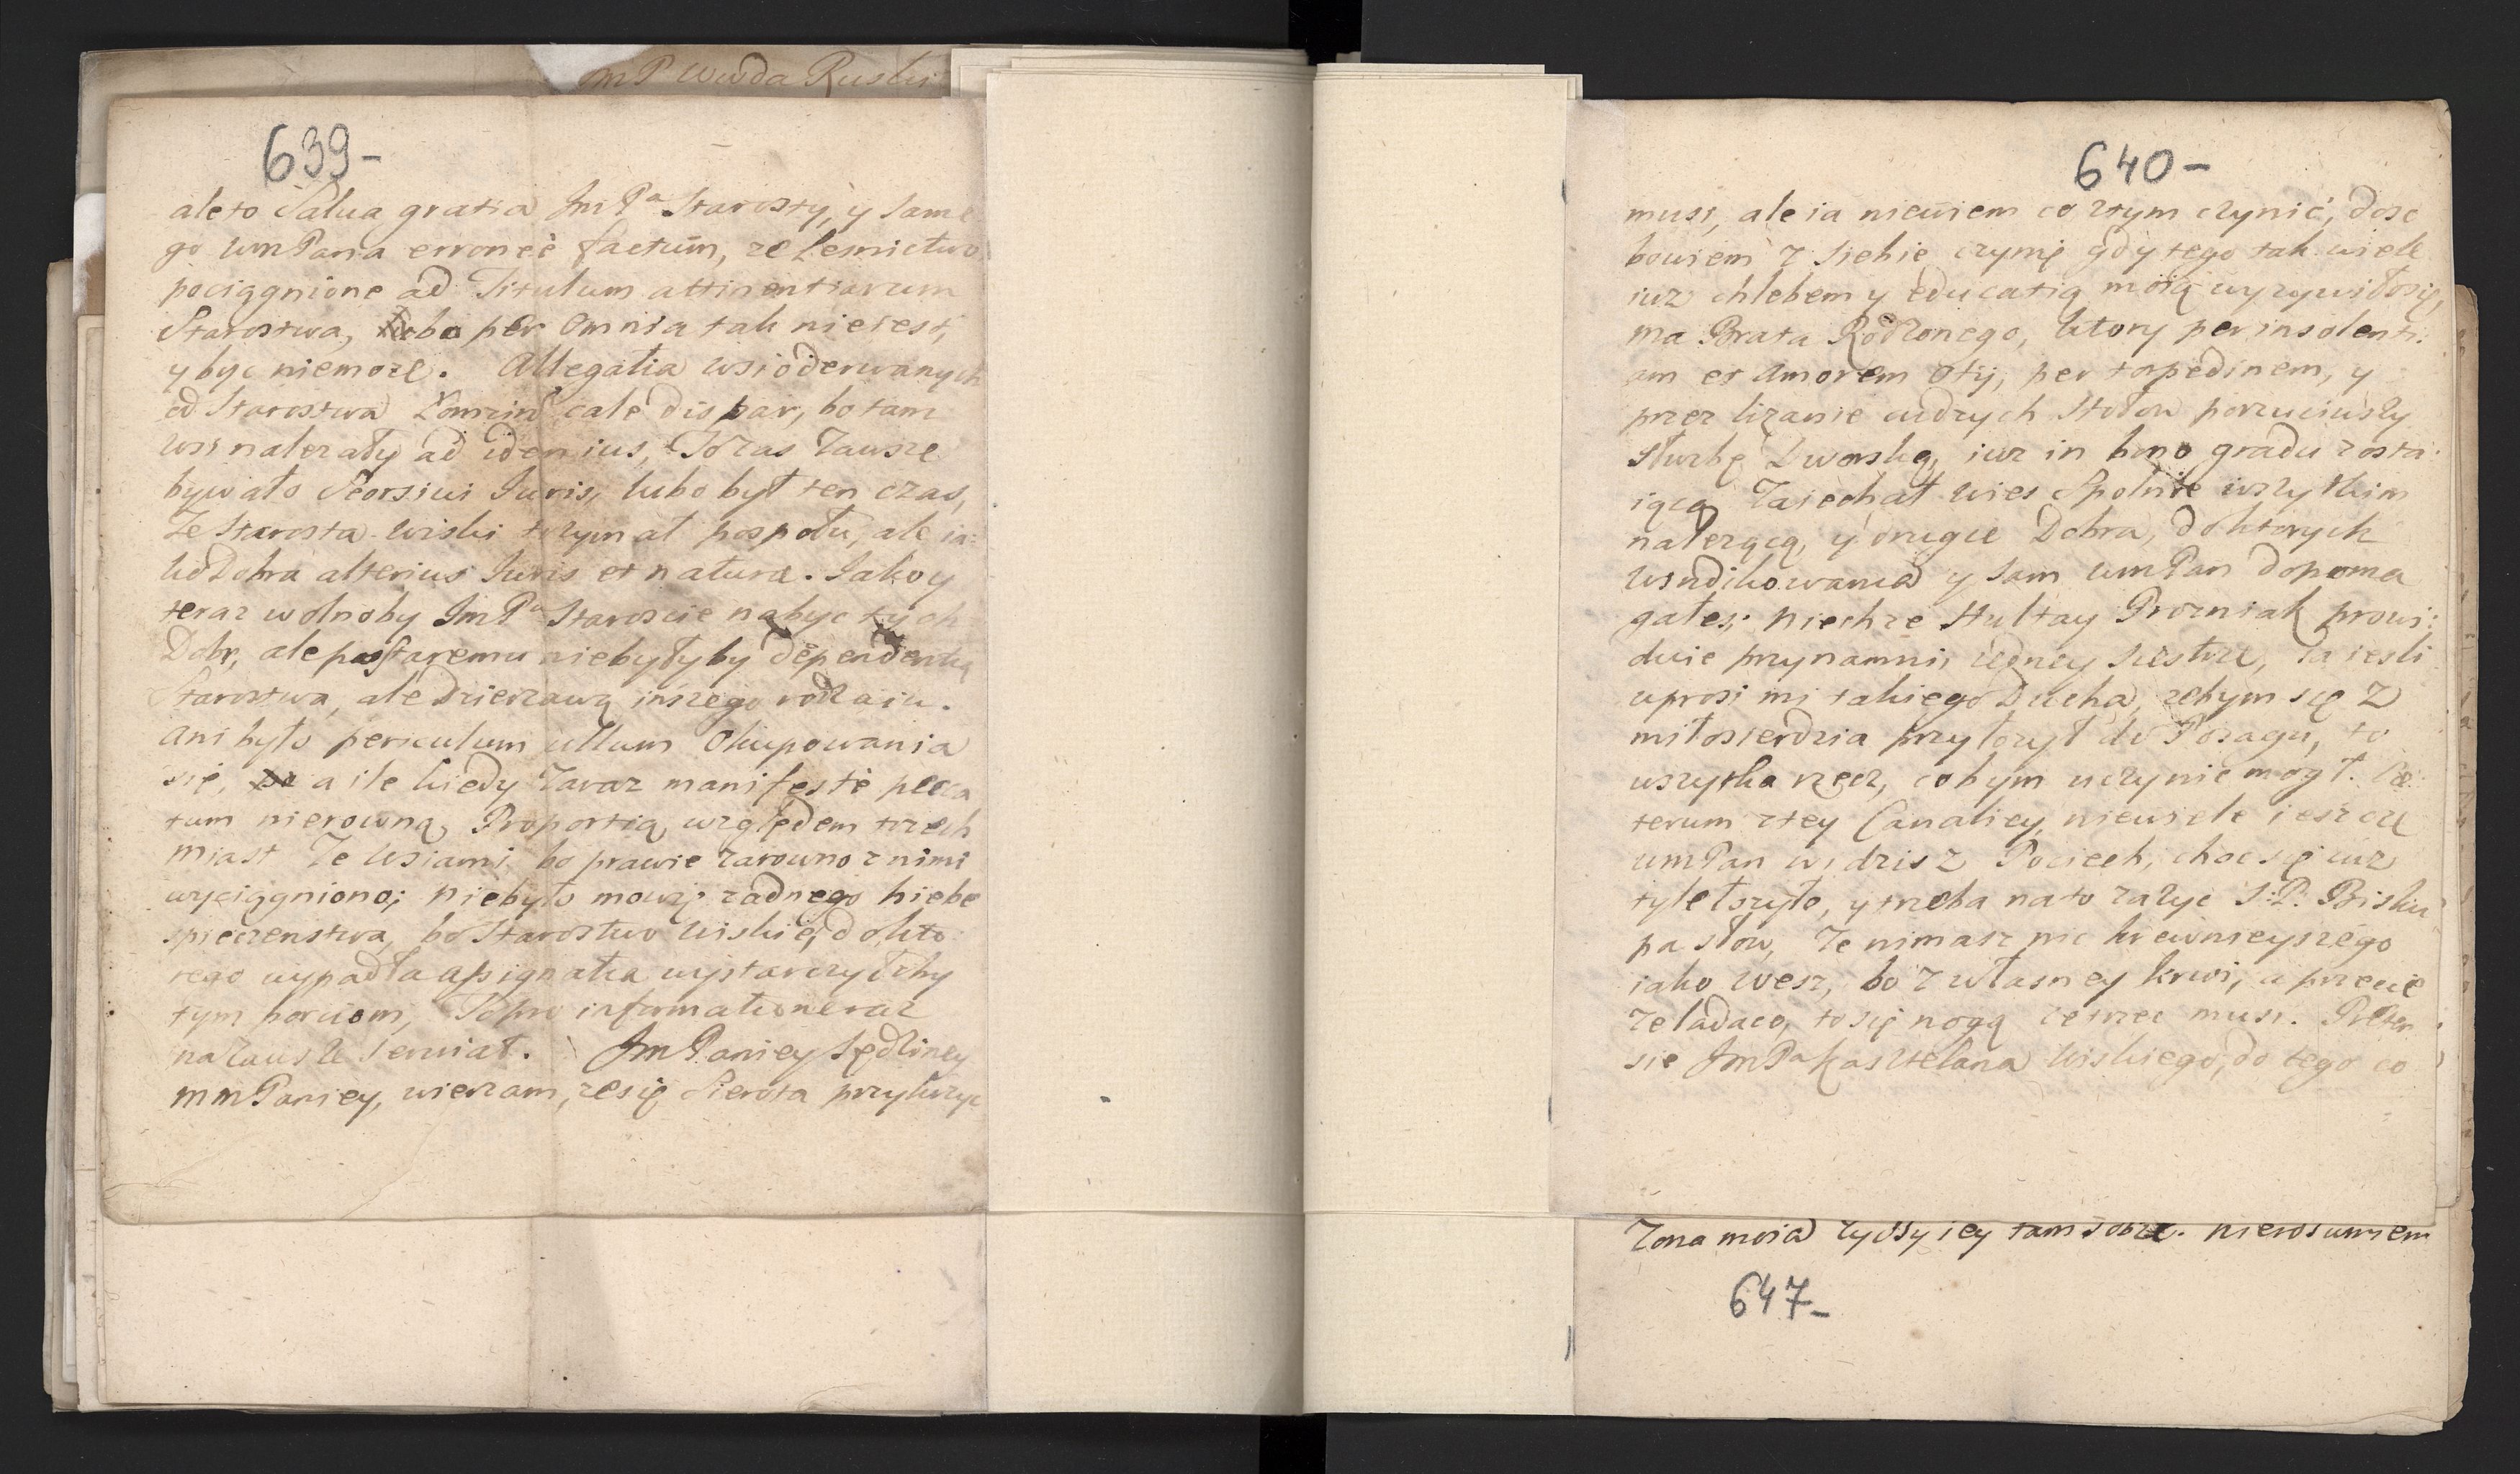 JmP Wwda Ruski
639-
ale to Salua gratia Jm Pa Starosty, y same
go WmPana erroneè factum, ze Lesnictwo
pociągnione ad Titulum attinentiarum
Starostwa, bo per omnia tak nieiest,
y byc niemoze. Allegatia wsi oderwanych
od Starostwa Łomzin cale dispar, bo tam
wsi nalezały ad idem ius, To zas zawsze
bywało Seorsiui Iuris, lubo był ten czas,
Ze Starosta wiski trzymał pospołu, ale ia:
ko Dobra alterius Iuris et naturæ. Jako y
teraz wolnoby Jm Pu Staroscie nabyc tych
Dobr, ale postaremu niebyłyby dependentią
Starostwa, ale Dzierzawą inszego rodzaiu.
ani było periculum ullum Okupowania
się, a ile kiedy zaraz manifestè
tum nierowną Proportią względem trzech
Miast Ze Wsiami bo prawie zarowno z nimi
wyciągniono; niebyło mowię zadnego niebe
spieczenstwa, bo Starostwo Wiskie, do kto
rego wypadła assignatia wystarczyłoby
tym porciom, To pro informatione raz
na zawsze serwiat. Jm Paniey Sędziney
mm Paniey, wierzam, ze się Sierota przykrzyc
640-
musi, ale ia niewiem co ztym czynić, dosc
bowiem z siebie czynię gdy tego tak wiele
iuz chlebem y educatią moią wyzywiłosię,
ma Brata Rodzonego, ktory per insolenti:
am et Amorem otij, per torpedinem, y
przez lizanie cudzych Stołow porzuciwszy
słuzbę Dworską, iuz in bono gradu zosta:
iącą Zaiechał wies Spolnie wszytkim
nalezącą, y drugie Dobra, do ktorych
windikowania y sam WmPan dopoma
gałes; niechze Hultay Prozniak prowi:
duie przynamnij iedney siestrze, Ia iesli
uprosi mi takiego Ducha, zebym się z
miłosierdzia przyłozył do Posagu, to
wszytka rzecz, co bym uczynic mogł. Cæ:
terum ztey Canaliey niewiele ieszcze
WmPan widzisz Pociech, choc się iuz
tyle łozyło, y trzeba na to zazyc S: P. Bisku
pa słow, Ze nimasz nic krewnieyszego
iako Wesz, bo z własney krwi, a przecie
ze ladaco, to się nogą zetrzec musi. Preten
sie Jm Pa Kasztelana Wiskiego, do tego co
Zona moia zyczy iey tam dobrze. nierozumiem
647-